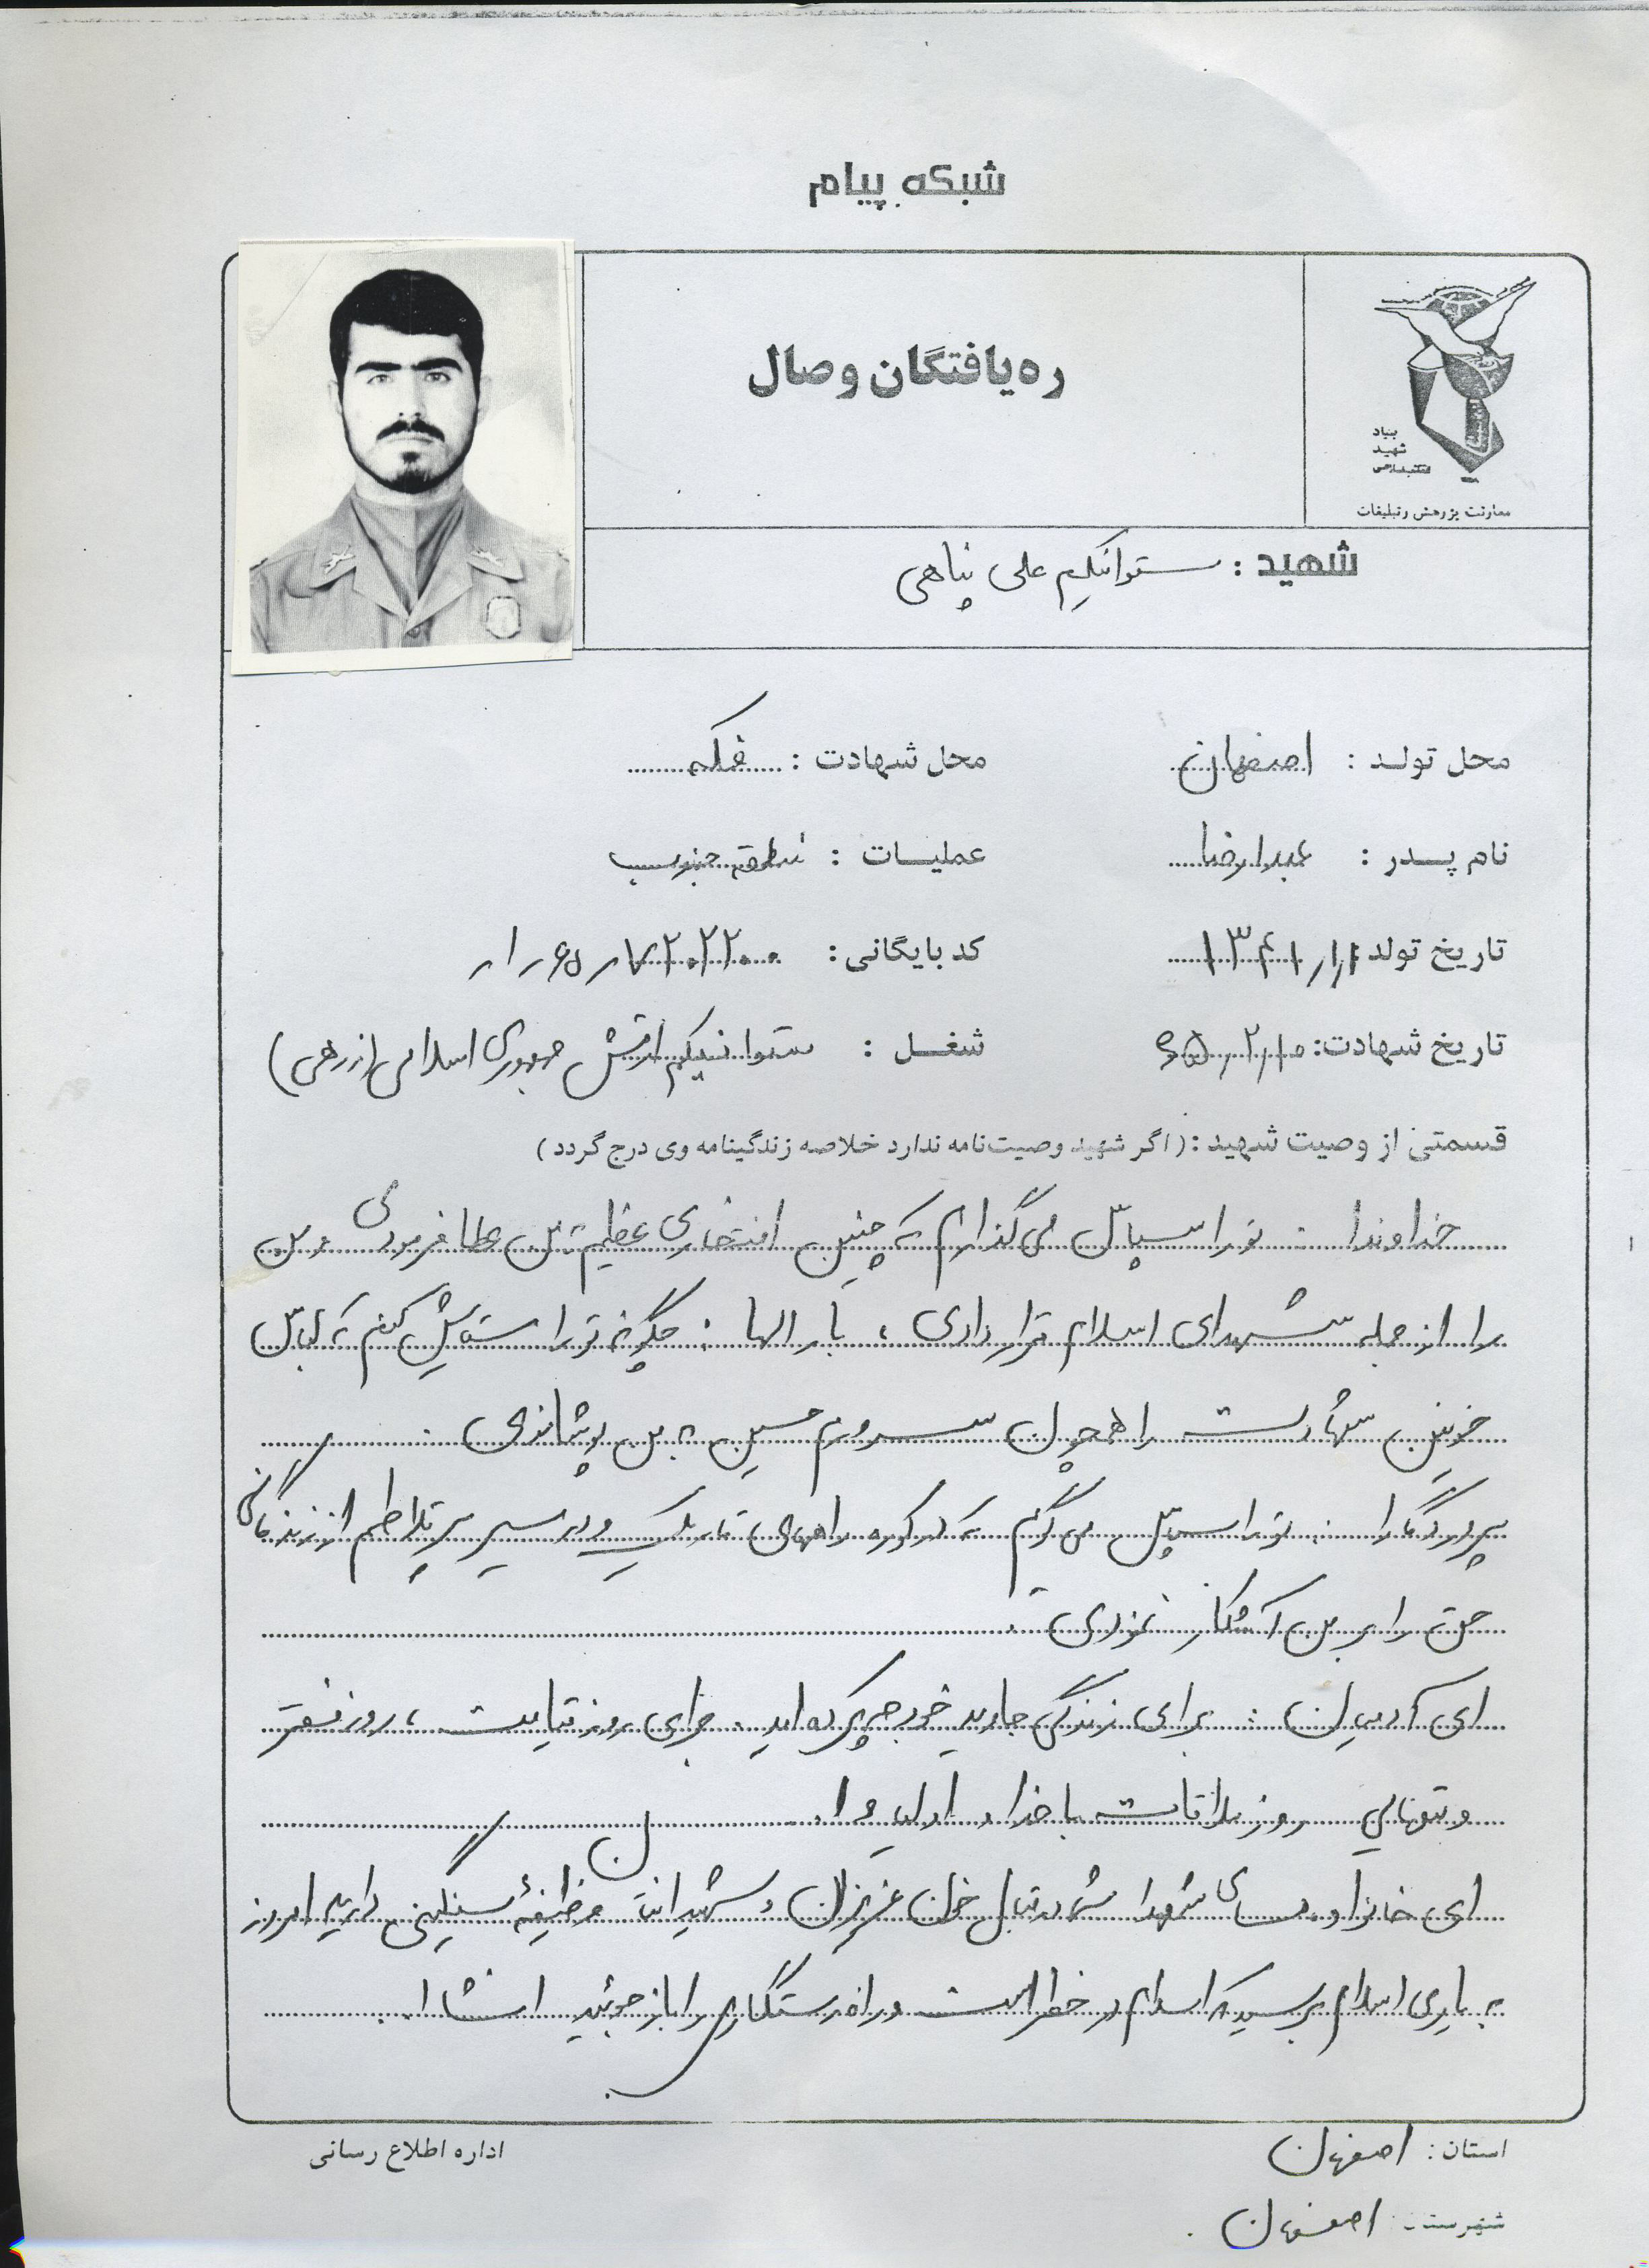 شبکه پیام
ره یافتگان وصال
بنیاد
شهید
انقلاب اسلامی
معاونت پژوهش و تبلیغات
شهید : ستوانیکم علی پناهی
محل تولد : اصفهان
محل شهادت : فکه
نام پدر : عبدالرضا
عملیات : منطقه جنوب
تاریخ تولد ۱۳۴۱٫۱٫۱
کد بایگانی :
تاریخ شهادت: ۶۵٫۲٫۱۰
شغل : ستوانیکم ارتش جمهوری اسلامی (زرهی)
قسمتی از وصیت شهید : ( اگر شهید وصیت‌نامه ندارد خلاصه زندگینامه وی درج گردد )
خداوندا : تو را سپاس می گذارم که چنین افتخاری عظیم به من عطا فرمودی و من
را از جمله شهدای اسلام قرار دادی ، بار الها : چگونه تو را ستایش کنم که لباس
خونین شهادت را همچون سرورم حسین به من پوشاندی .
پروردگارا : تو را سپاس می گویم که در کوره راههای تاریک و در مسیر پر تلاطم از زندگانی
حق را بر من آشکار نمودی .
ای آدمیان : برای زندگی جاوید خود چه کرده اید . برای روز قیامت ، روز فقر
و تنهایی روز ملاقات با خدا و اولیاء او .
ای خانواده های شهدا شما در قبال خون عزیزان و شهیدانتان وظیفهٔ سنگینی دارید امروز
به یاری اسلام برسید که اسلام در خطر است و راه رستگاری را باز جوئید انشاا...
استان : اصفهان
اداره اطلاع رسانی
شهرستان : اصفهان .